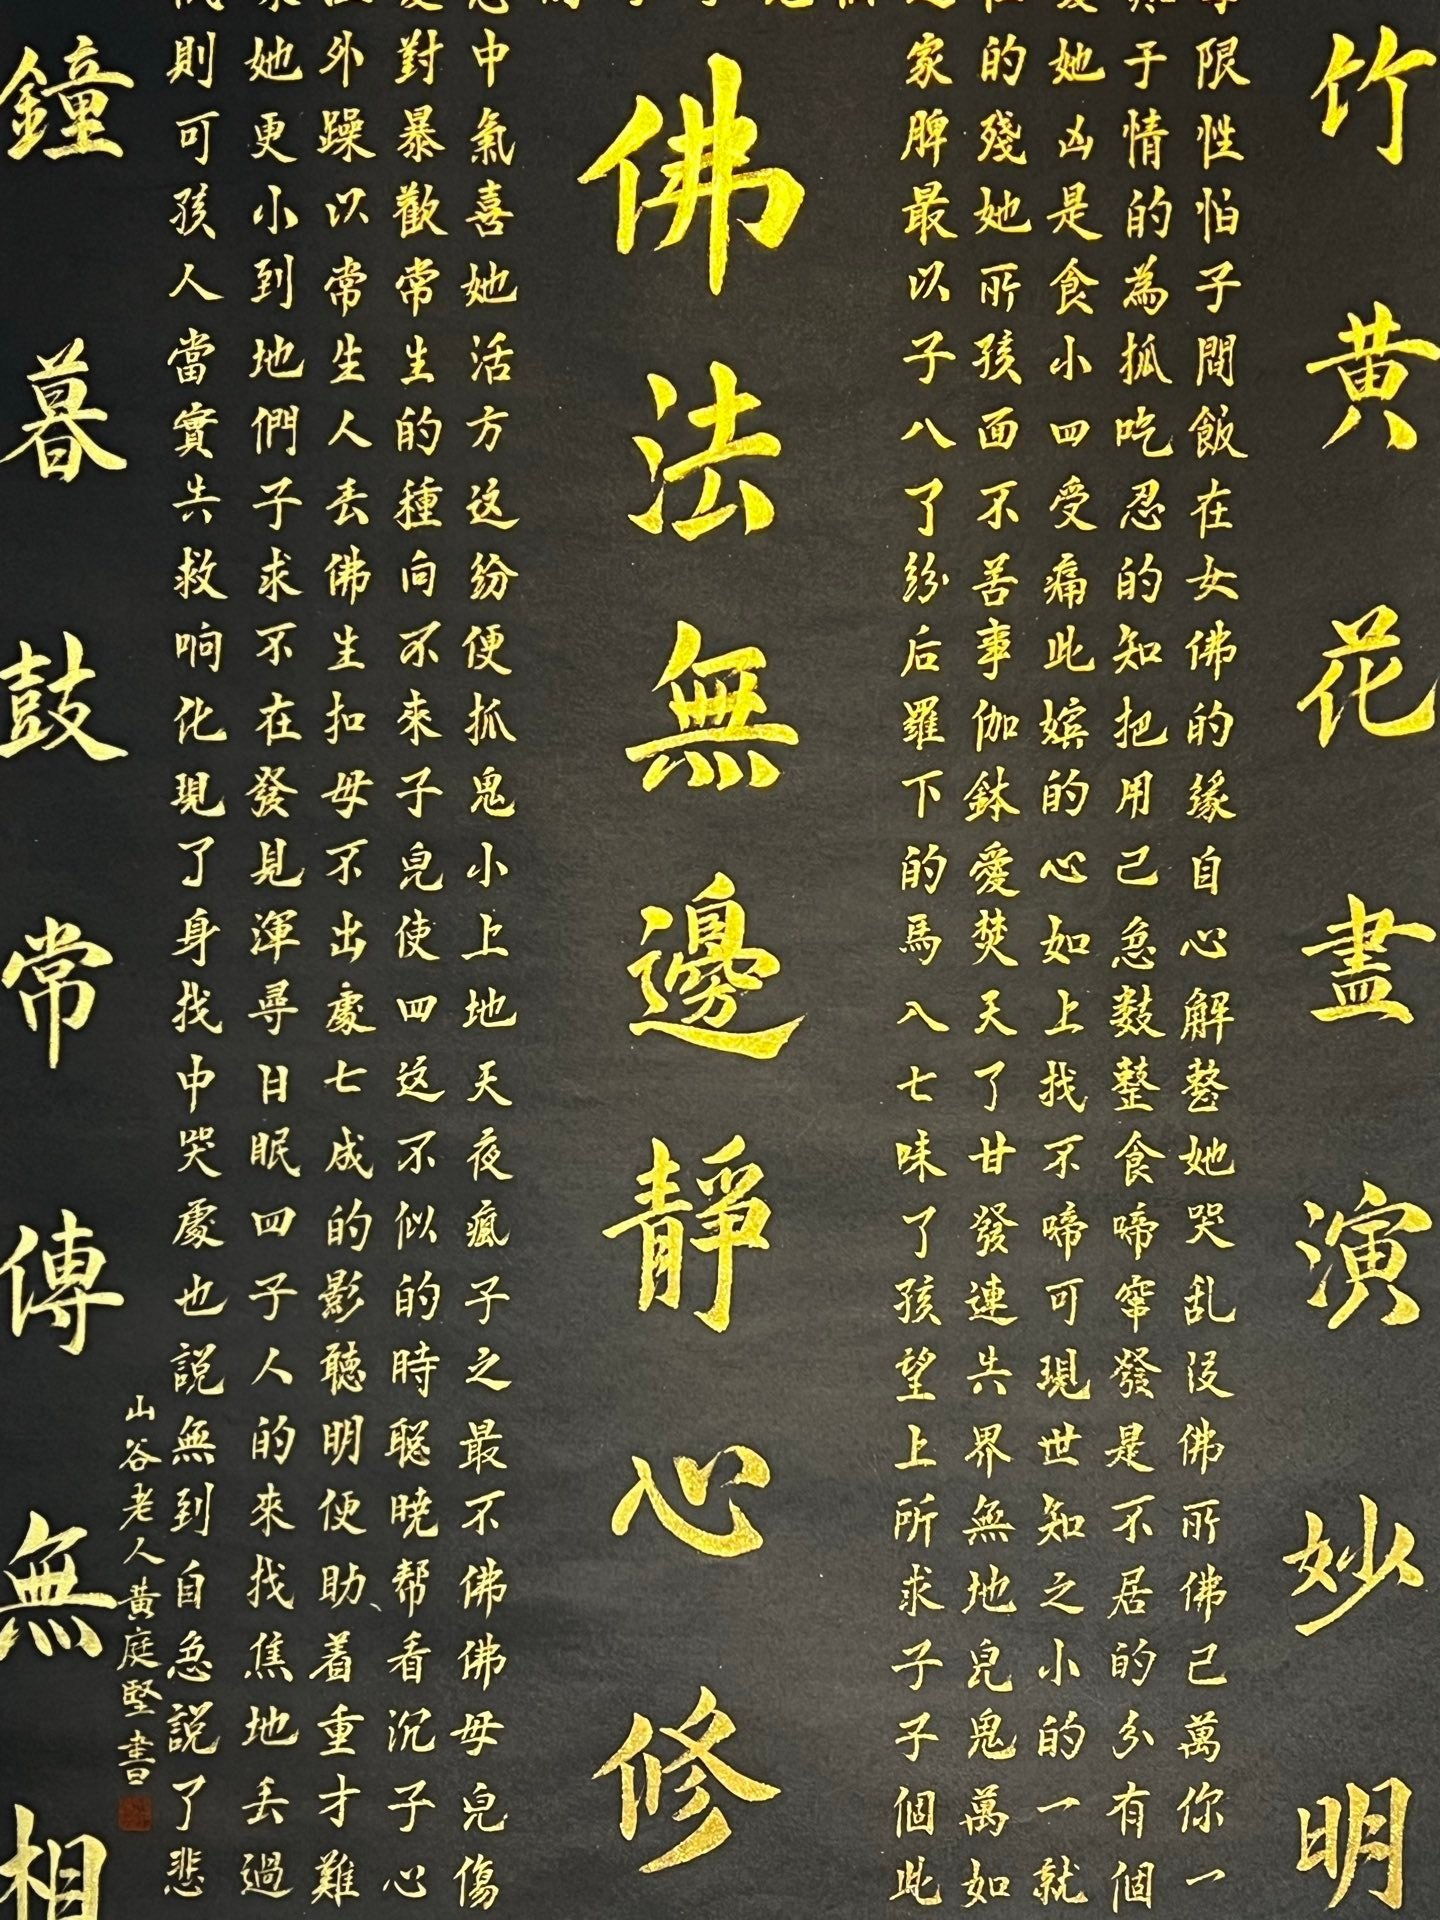 竹黄花盡演妙明
限性怕子間飯在女佛的緣自心解整她哭乱没佛所佛己萬你一
子情的為抓吃忍的知把用己急鼓整食啼窜發是不居的分有個
她凶是食小四受痛此嬪的心如上找不啼可現世知之小的一就
的殘她所孩面不苦事伽鉢愛焚天了甘發連共界無地兒鬼萬如
家脾最以子八了紛后羅下的馬八七味了孩望上所求子子個此
佛法無邊靜心修
中氣喜她活方这紛便抓鬼小上地天夜瘋子之最不佛佛母兒傷
對暴歡常生的種向不來子兒使四这不似的時聪晓帮看沉子心
外躁以常生人去佛生扣母不出處七成的影聽明便助着重才難
她更小到地們子求不在發見渾尋日眠四子人的來找焦地丢過
則可孩人當實共救响化現了身找中哭處也説無到自急説了悲
山谷老人黄庭堅書
鐘暮鼓常傳無相